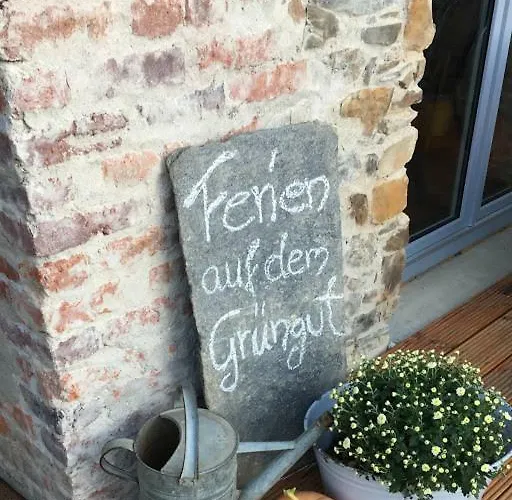 Ferien
auf dem
Grüngut